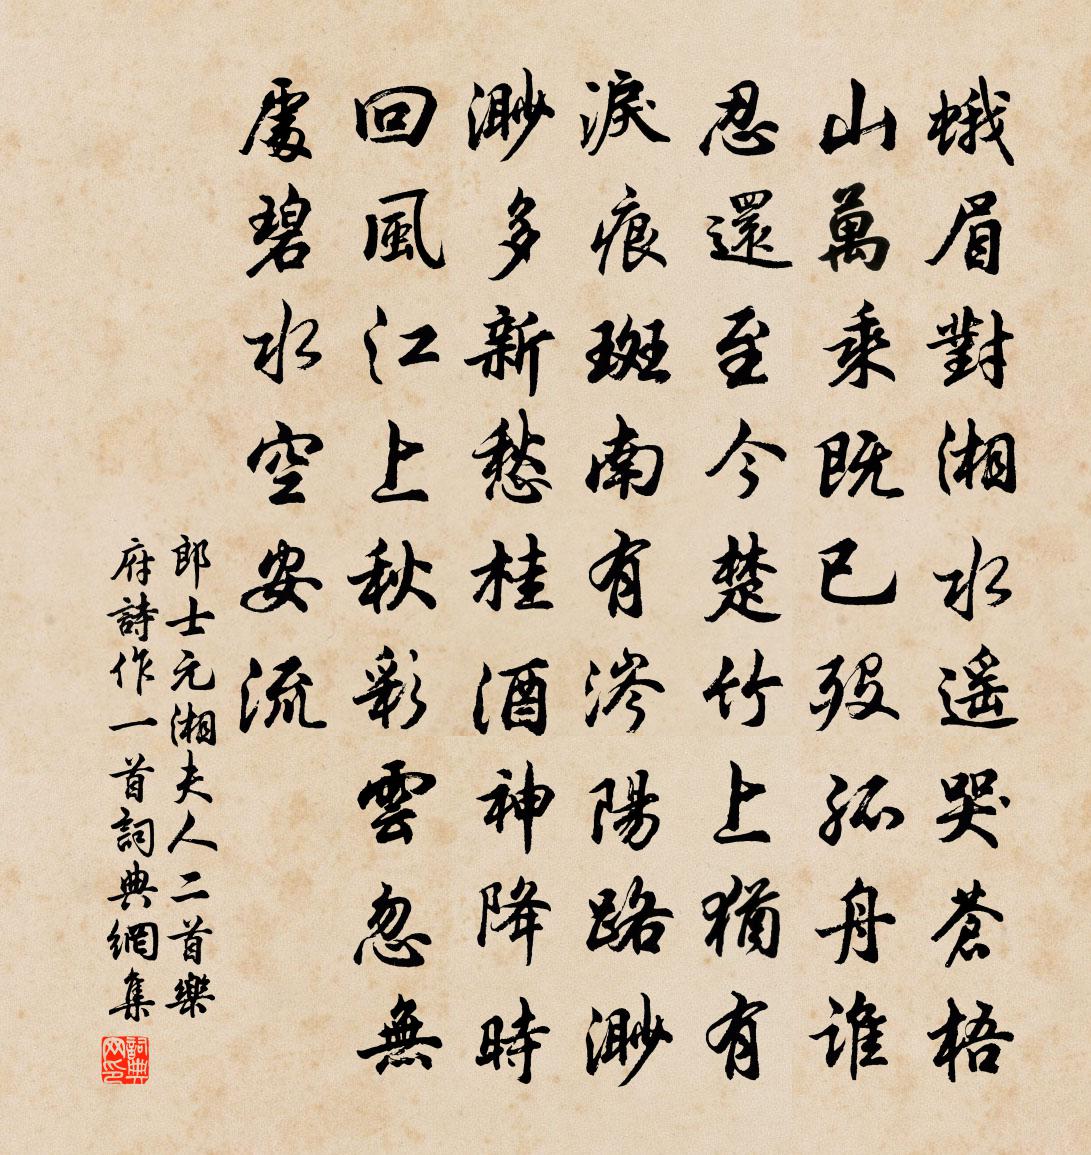 蛾眉對湘水遥哭蒼梧
山萬乘既已歿孤舟誰
忍還至今楚竹上猶有
淚痕斑南有涔陽路渺
渺多新愁桂酒神降時
回風江上秋彩雲忽無
處碧水空安流
郎士元湘夫人二首樂
府詩作一首詞典網集
詞典网印